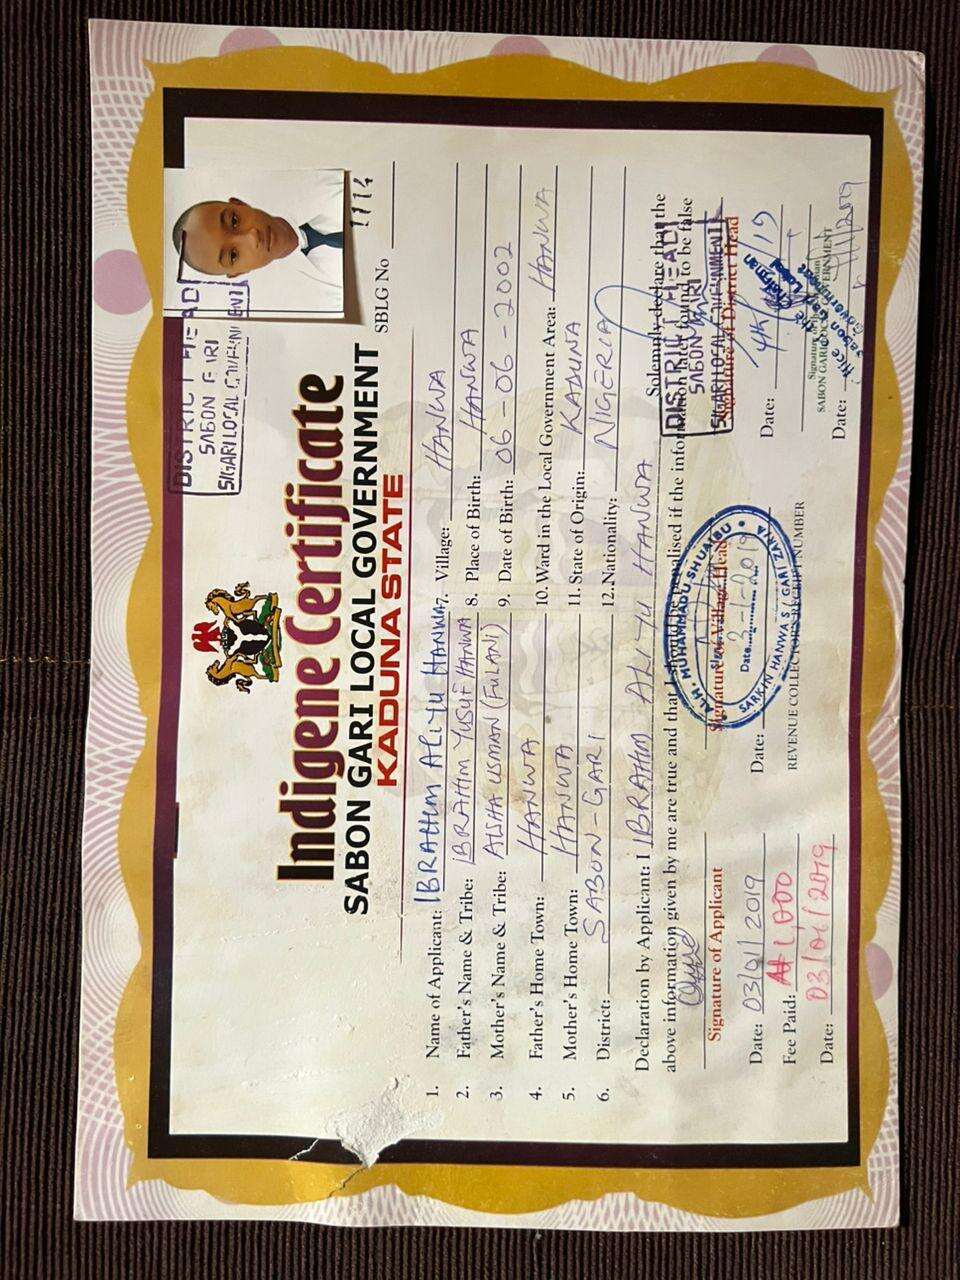 Indigene Certificate
SABON GARI LOCAL GOVERNMENT
KADUNA STATE
DISTRICT HEAD
SABON GARI
S/GARI LOCAL GOVERNMENT
SBLG No 1114
1. Name of Applicant: IBRAHIM ALIYU HANWA
2. Father's Name & Tribe: IBRAHIM YUSUF HANWA
3. Mother's Name & Tribe: AISHA USMAN (FULANI)
4. Father's Home Town: HANWA
5. Mother's Home Town: HANWA
6. District: SABON-GARI
7. Village: HANWA
8. Place of Birth: HANWA
9. Date of Birth: 06-06-2002
10. Ward in the Local Government Area: HANWA
11. State of Origin: KADUNA
12. Nationality: NIGERIA
Declaration by Applicant: I IBRAHIM ALIYU HANWA Solemnly declare that the
above information given by me are true and that I should be penalised if the information later found to be false
Signature of Applicant
Date: 03/01/2019
Fee Paid: ₦1,000
Date: 03/01/2019
Signature of Village Head
Date:
REVENUE COLLECTOR'S RECEIPT NUMBER
ALH. MUHAMMADU SHUAIBU
Date 3-1-2019
SARKIN HANWA S/GARI ZARIA
DISTRICT HEAD
SABON GARI
S/GARI LOCAL GOVERNMENT
Signature of District Head
Date:
SABON GARI LOCAL GOVERNMENT
Date: